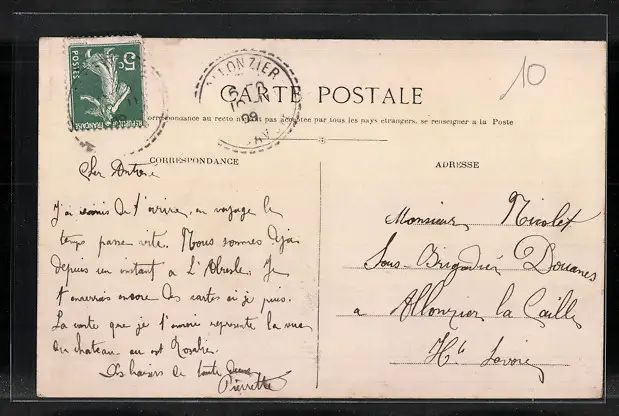 5c
POSTES
10
ALLONZIER
09
CARTE POSTALE
correspondance au recto n'est pas acceptée par tous les pays étrangers, se renseigner à la Poste
CORRESPONDANCE
ADRESSE
J'ai de t'écrire, en voyage le
temps passe vite. Nous sommes déjà
depuis un instant à L'Abresle. Je
t'enverrai encore des cartes si je puis.
La carte que je t'envoie représente la vue
du château où est Rosalie.
Des baisers de toute
Pierrette
Monsieur Nicolet
Sous-Brigadier Douanes
a Allonzier la Caille
Hte Savoie